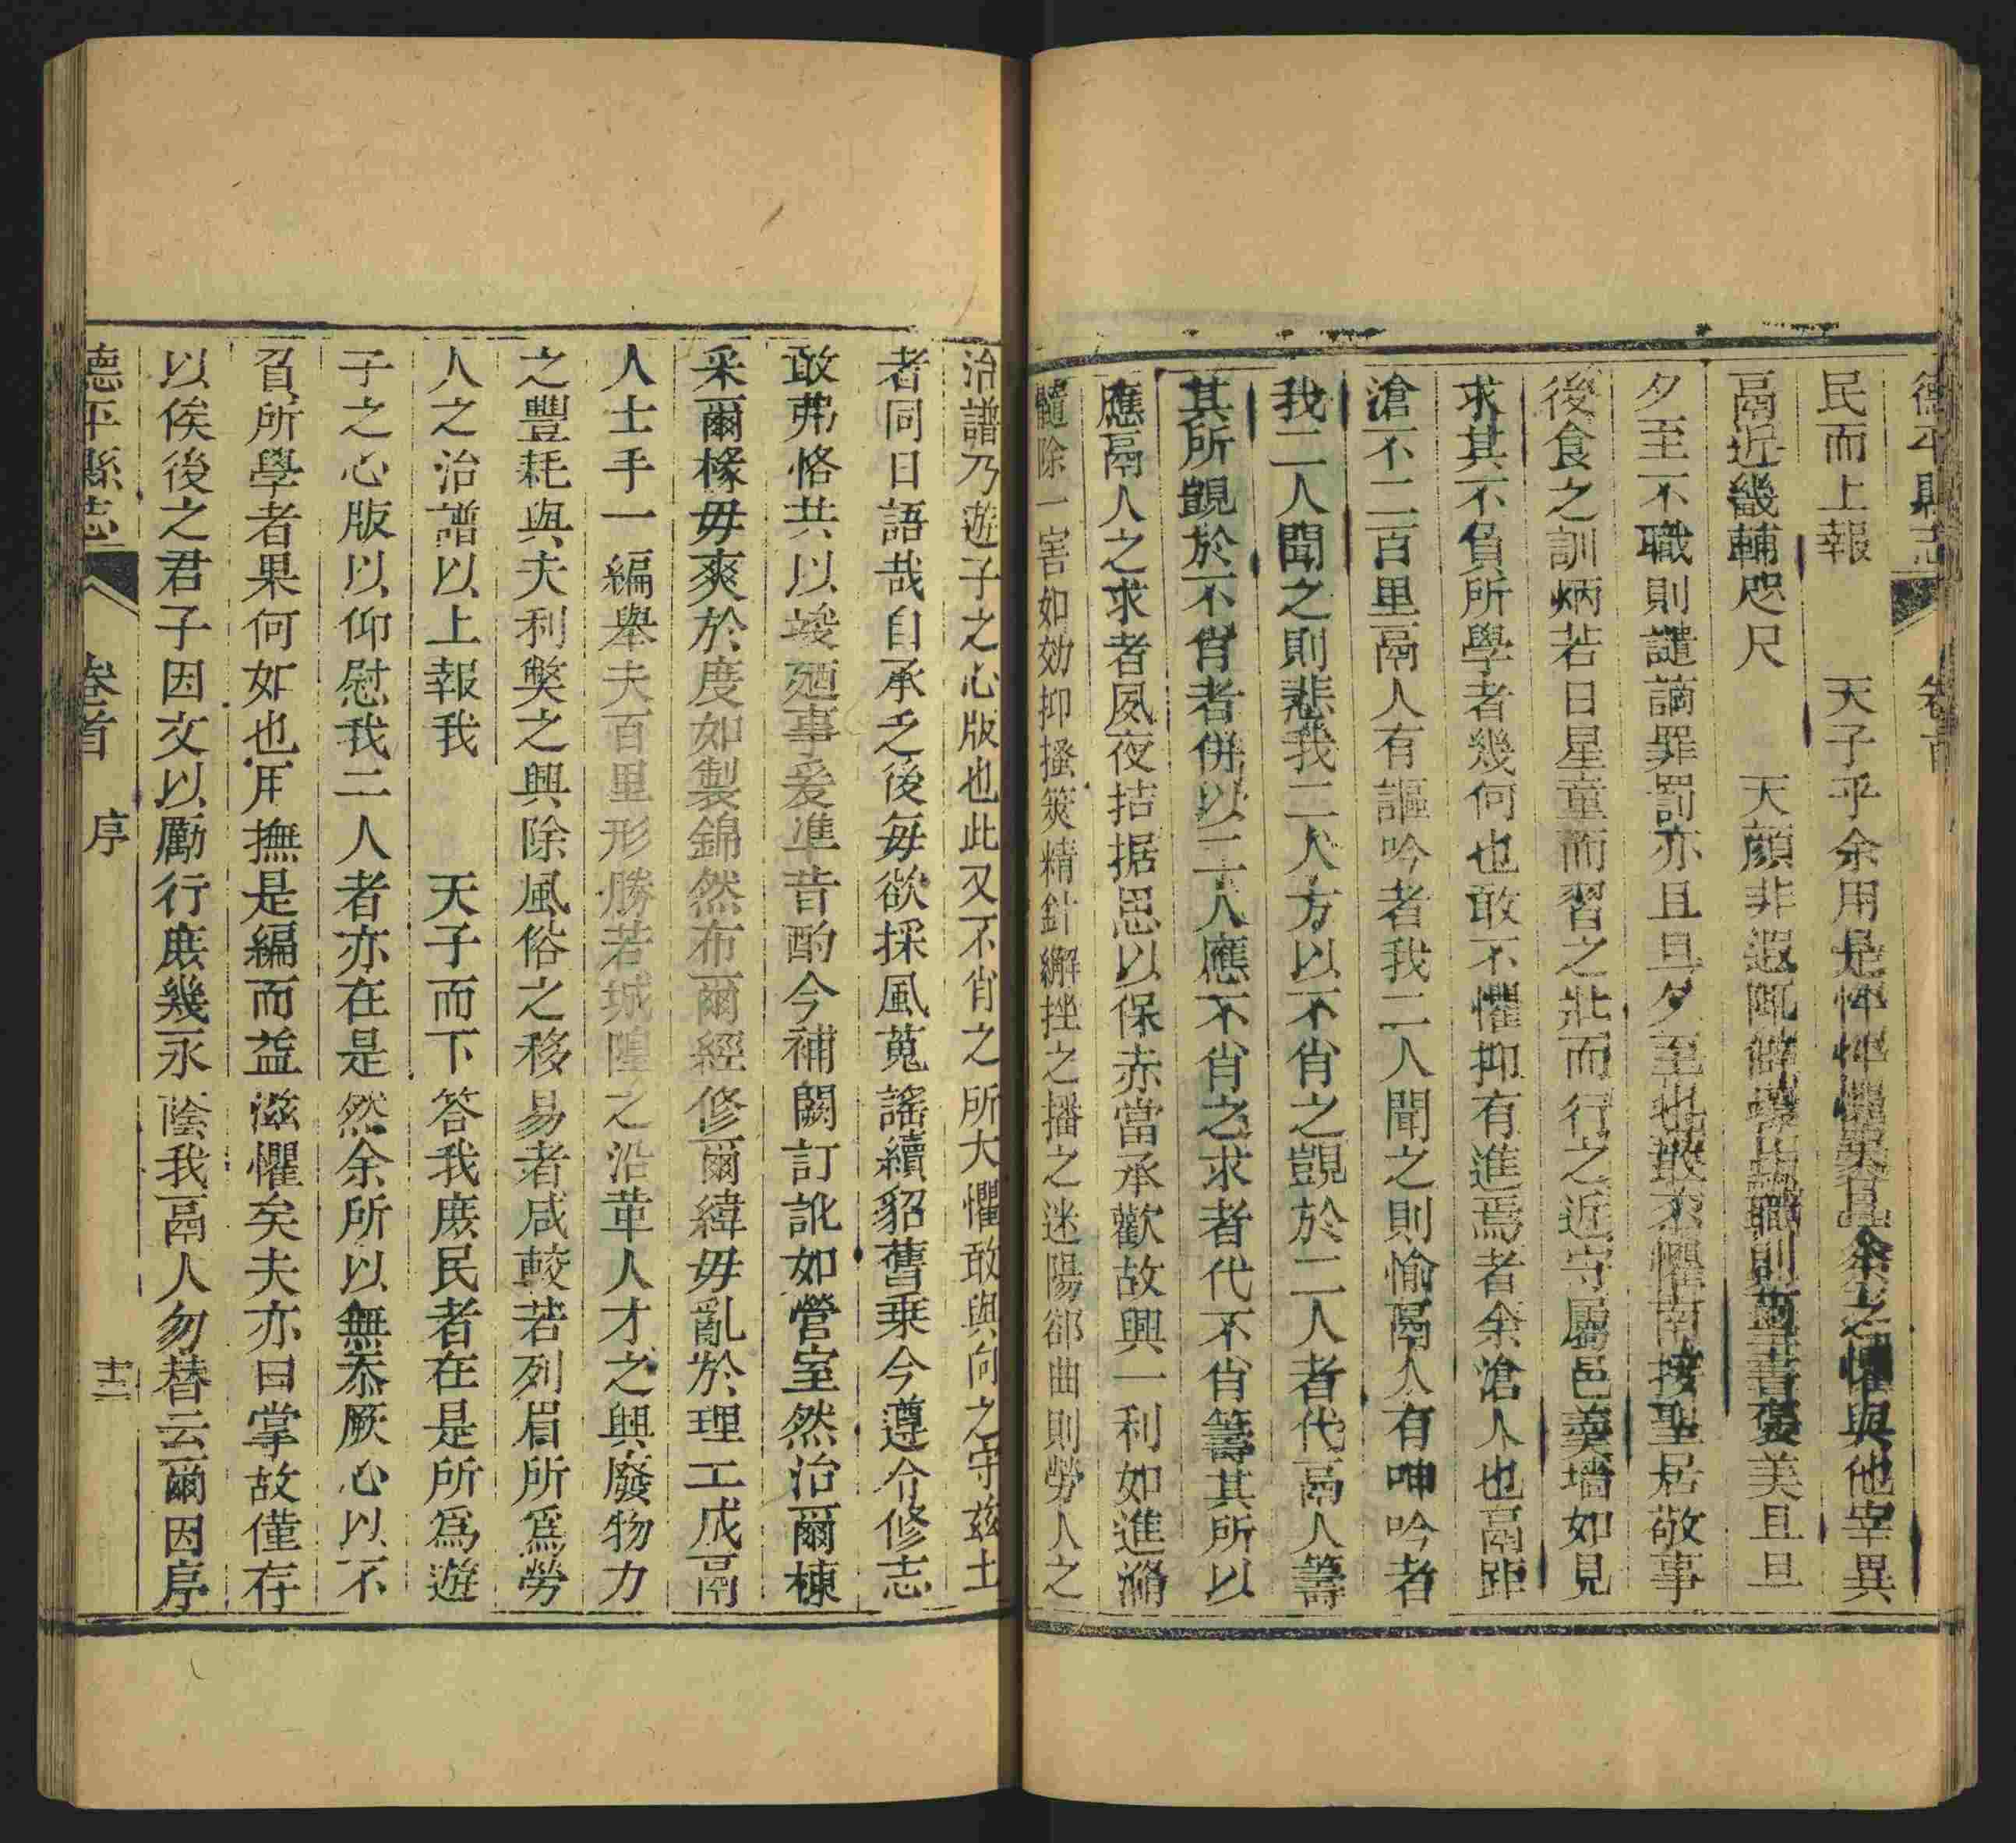 德平縣志 卷首
民而上報 天子乎余用是惴惴懼余之懼與他宰異
鬲近畿輔咫尺 天顏非遐陬僻壤職則璽書褒美且旦
夕至不職則譴謫罪罰亦且旦夕至也敢不懼南接聖居敬事
後食之訓炳若日星童而習之壯而行之近守屬邑羮墻如見
求其不負所學者幾何也敢不懼抑有進焉者余滄人也鬲距
滄不二百里鬲人有謳吟者我二人聞之則愉鬲人有呻吟者
我二人聞之則悲我二人方以不肖之覬於二人者代鬲人籌
其所覬於不肖者併以二人應不肖之求者代不肖籌其所以
應鬲人之求者夙夜拮据思以保赤當承歡故興一利如進滫
髓除一害如効抑搔筴精針繲挫之播之迷陽郤曲則勞人之
治譜乃遊子之心版也此又不肖之所大懼敢與向之守兹土
者同日語哉自承乏後每欲採風蒐謠續貂舊乗今遵令修志
敢弗恪共以竣廼事爰準昔酌今補闕訂訛如營室然治爾棟
采爾椽毋爽於度如製錦然布爾經修爾緯毋亂於理工成鬲
人士手一編舉夫百里形勝若城隍之沿革人才之興廢物力
之豐耗與夫利獘之興除風俗之移易者咸較若列眉所爲勞
人之治譜以上報我 天子而下答我庶民者在是所爲遊
子之心版以仰慰我二人者亦在是然余所以無忝厥心以不
負所學者果何如也用撫是編而益滋懼矣夫亦曰掌故僅存
以俟後之君子因文以勵行庶幾永陰我鬲人勿替云爾因序
德平縣志 卷首 序 十二